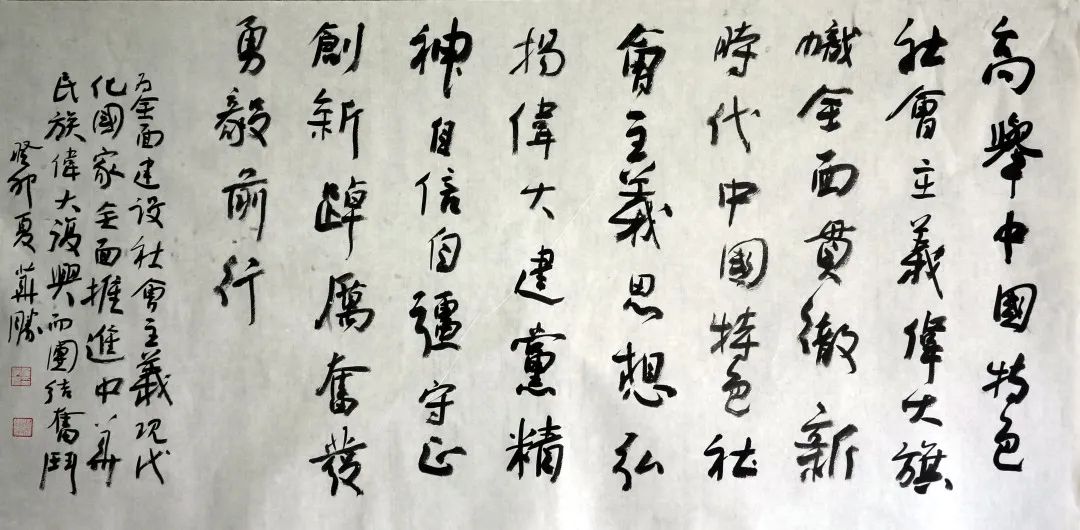 高舉中國特色
社會主義偉大旗
幟全面貫徹新
時代中國特色社
會主義思想弘
揚偉大建黨精
神自信自疆守正
創新踔厲奮發
勇毅前行
为全面建设社會主義现代
化國家全面推進中華
民族偉大復興而團结奮鬥
癸卯夏華勝